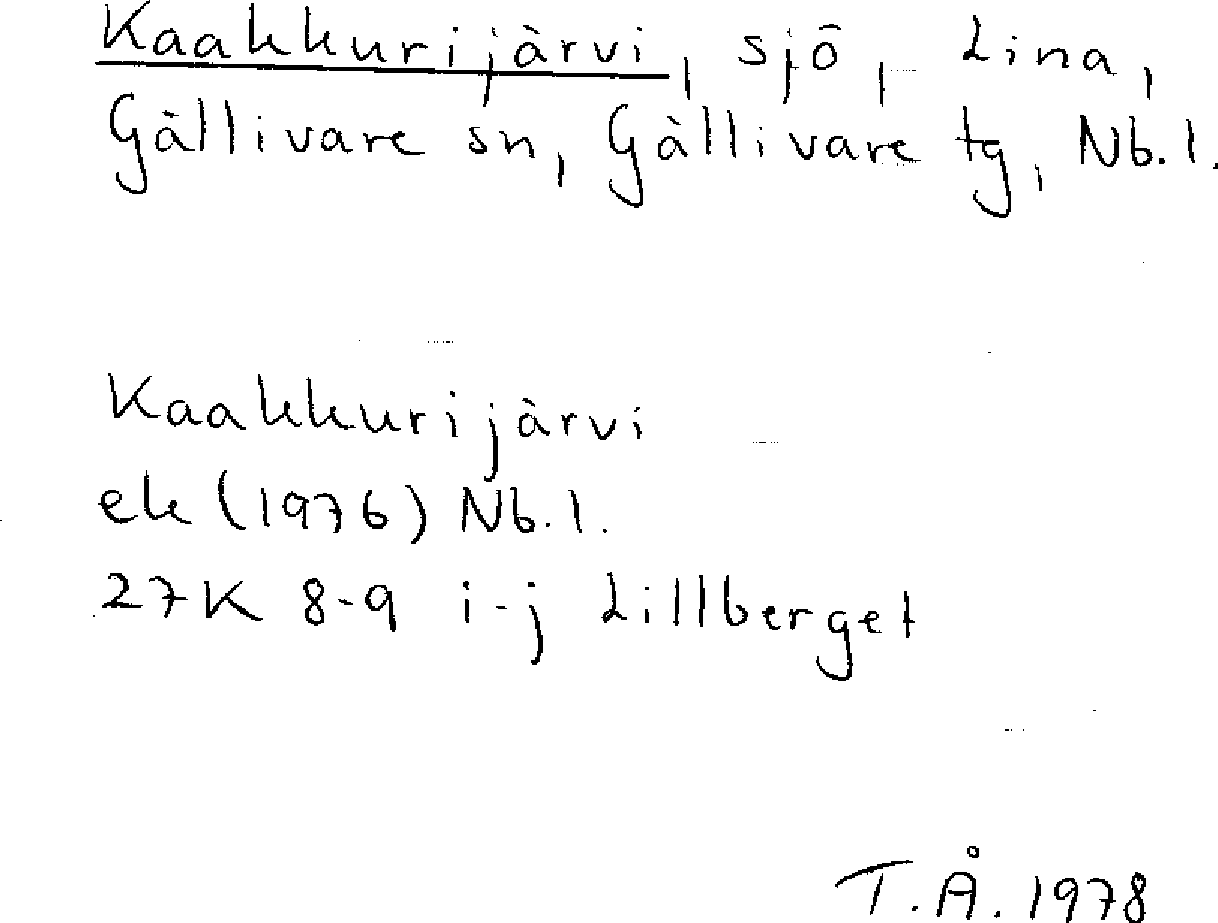 Kaakkurijärvi, sjö, Lina,
Gällivare sn, Gällivare tg, Nb.l.
Kaakkurijärvi
ek (1976) Nb.l.
27K 8-9 i-j Lillberget
T.Å. 1978